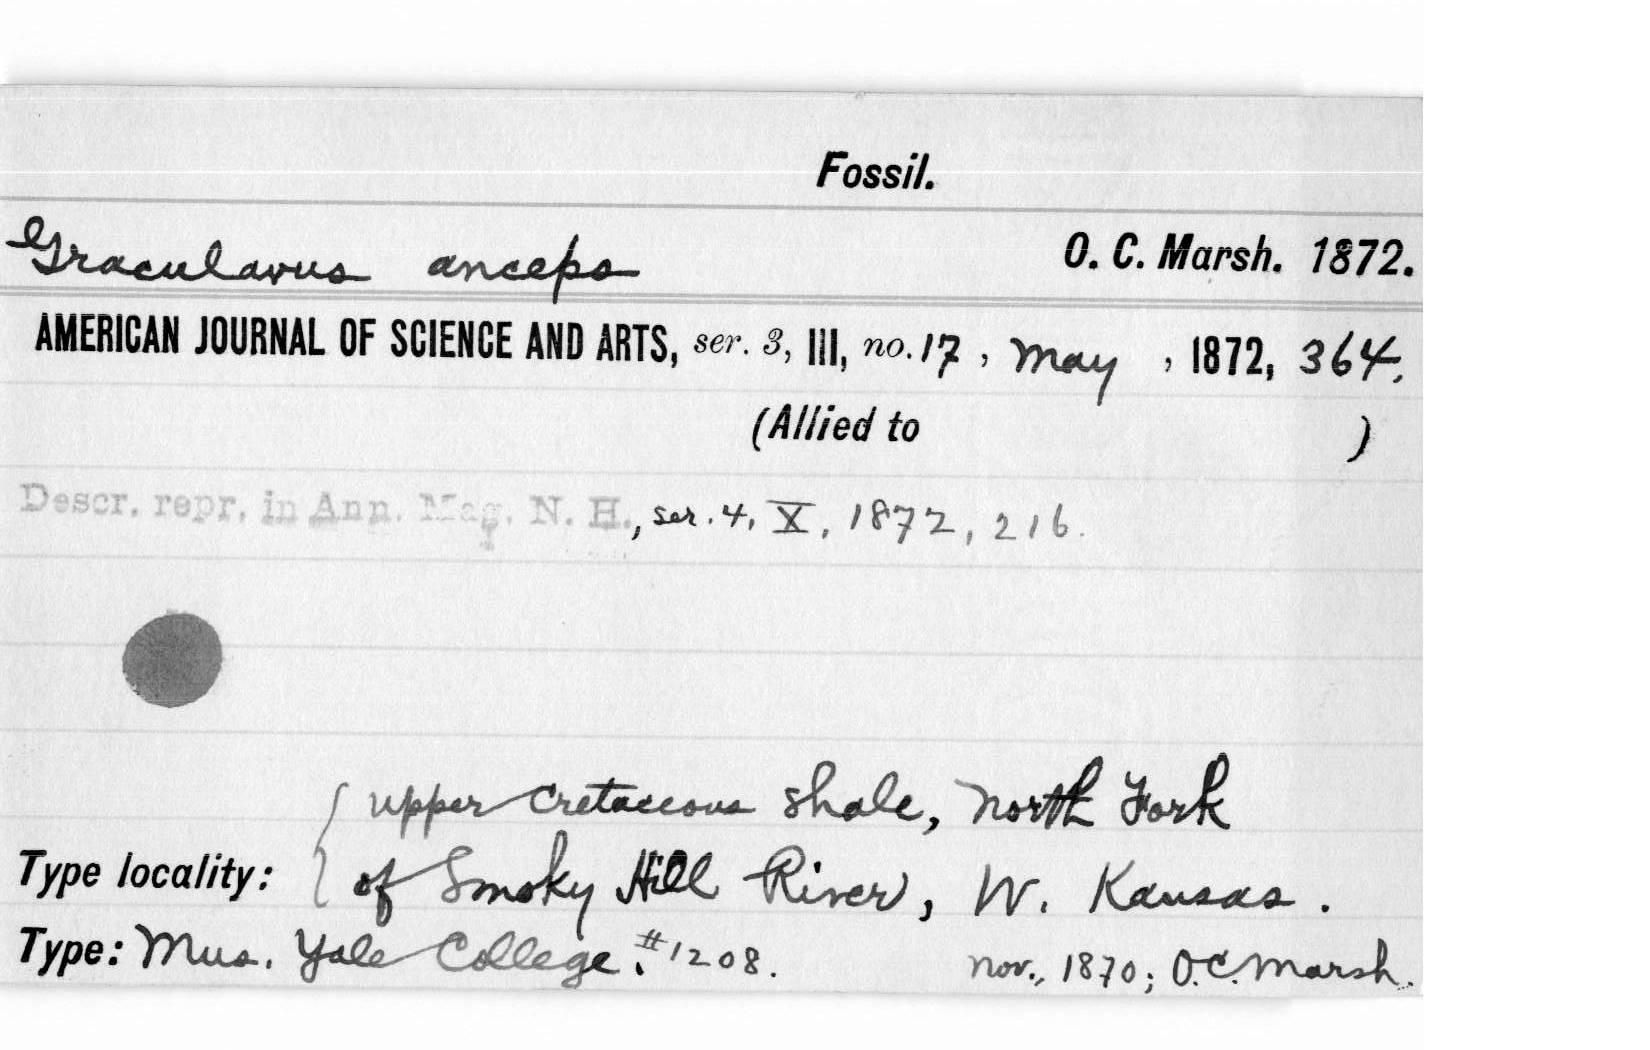 Fossil.
Graculavus anceps O. C. Marsh. 1872.
AMERICAN JOURNAL OF SCIENCE AND ARTS, ser. 3, III, no. 17, May, 1872, 364.
(Allied to )
Descr. repr. in Ann. Mag. N. H., ser. 4, X, 1872, 216.
upper Cretaceous shale, North Fork
Type locality: of Smoky Hill River, W. Kansas.
Type: Mus. Yale College. #1208. Nov., 1870; O.C. Marsh.